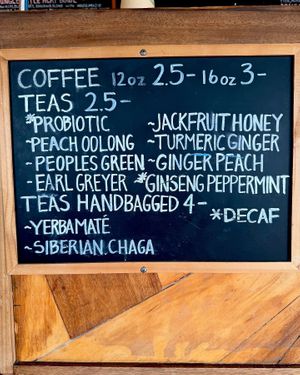 COFFEE 12oz 2.5- 16oz 3-
TEAS 2.5-
*PROBIOTIC ~JACKFRUIT HONEY
~PEACH OOLONG ~TURMERIC GINGER
~PEOPLES GREEN ~GINGER PEACH
~EARL GREYER *GINSENG PEPPERMINT
TEAS HANDBAGGED 4-
*DECAF
~YERBA MATÉ
~SIBERIAN CHAGA